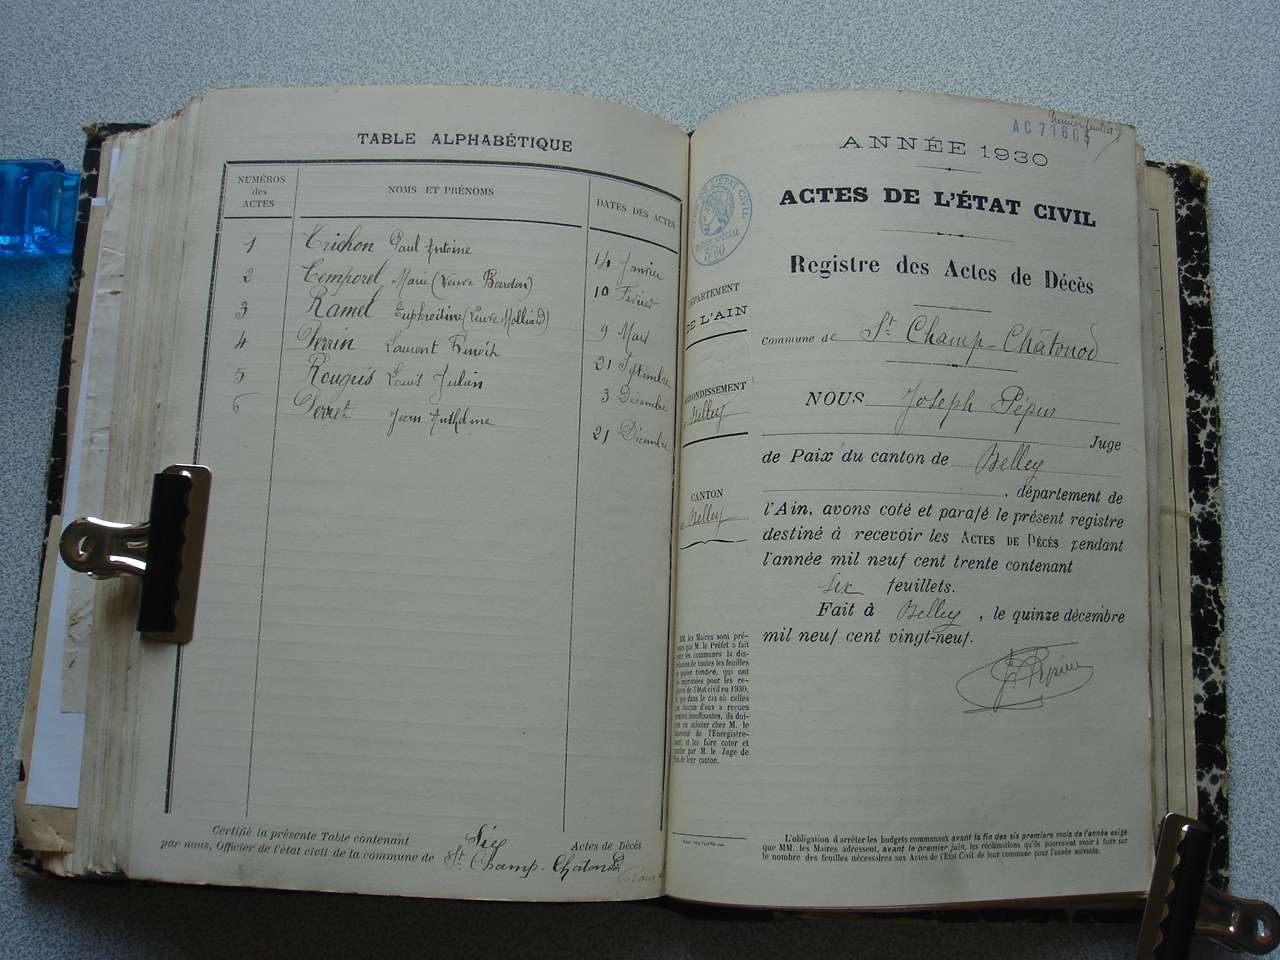 TABLE ALPHABÉTIQUE
NUMÉROS
des
ACTES
NOMS ET PRÉNOMS
DATES DES ACTES
1 Trichon Paul Antoine 14 Janvier
2 Temporel Marie (Veuve Bardon) 10 Février
3 Ramel Euphroisine (Veuve Molliard) 9 Mars
4 Perrin Laurent Benoit 21 Septembre
5 Rougis Louis Julien 3 Décembre
6 Perret Jean Anthelme 21 Décembre
Certifié la présente Table contenant Six Actes de Décès
par nous, Officier de l'état civil de la commune de St Champ-Chatonod
AC 71605
ANNÉE 1930
ACTES DE L'ÉTAT CIVIL
Registre des Actes de Décès
DÉPARTEMENT
DE L'AIN
ARRONDISSEMENT
de Belley
CANTON
de Belley
Commune de St. Champ-Châtonod
NOUS Joseph Pépin
Juge
de Paix du canton de Belley
, département de
l'Ain, avons coté et parafé le présent registre
destiné à recevoir les ACTES DE DÉCÈS pendant
l'année mil neuf cent trente contenant
six feuillets.
Fait à Belley, le quinze décembre
mil neuf cent vingt-neuf.
J. Pépin
MM. les Maires sont pré-
venus que M. le Préfet a fait
pour les communes la dis-
tribution de toutes les feuilles
de papier timbré, qui ont
été imprimées pour les re-
gistres de l'état civil en 1930,
et que dans le cas où celles
que chacun d'eux a reçues
seraient insuffisantes, ils doi-
vent en acheter chez M. le
Receveur de l'Enregistre-
ment, et les faire coter et
parafer par M. le Juge de
Paix de leur canton.
L'obligation d'arrêter les budgets communaux avant la fin des six premiers mois de l'année exige
que MM. les Maires adressent, avant le premier juin, les réclamations qu'ils pourraient avoir à faire sur
le nombre des feuilles nécessaires aux Actes de l'État Civil de leur commune pour l'année suivante.